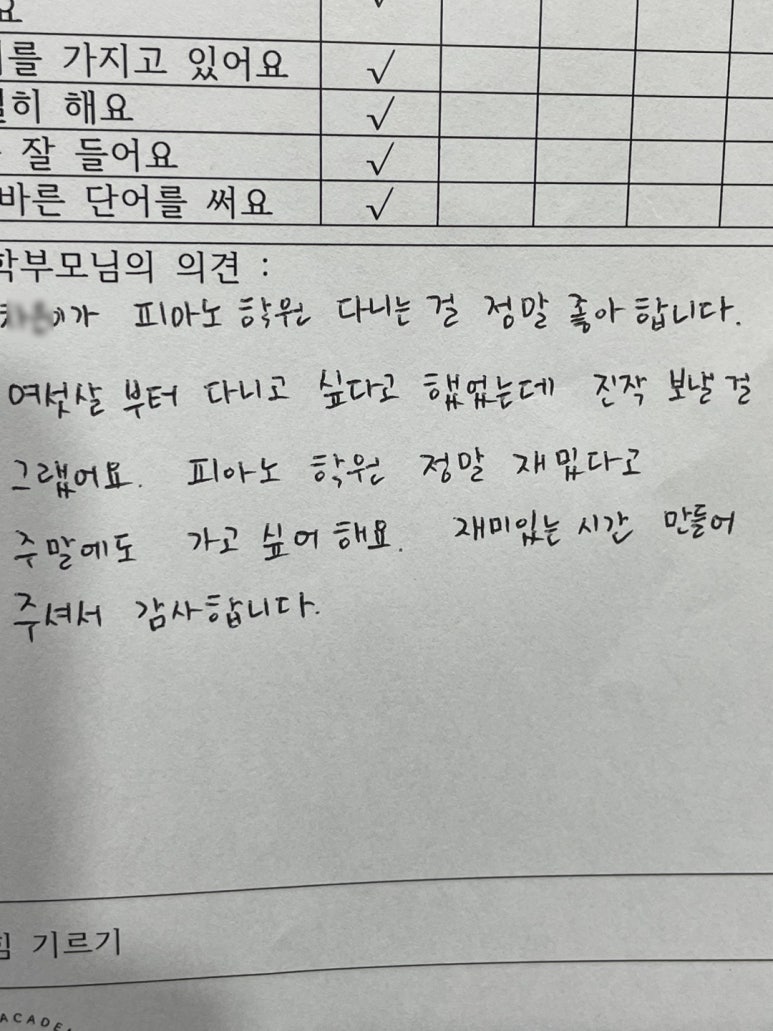 요
를 가지고 있어요 √
히 해요 √
잘 들어요 √
바른 단어를 써요 √
학부모님의 의견 :
이가 피아노 학원 다니는 걸 정말 좋아 합니다.
여섯살 부터 다니고 싶다고 했었는데 진작 보낼 걸
그랬어요. 피아노 학원 정말 재밌다고
주말에도 가고 싶어 해요. 재미있는 시간 만들어
주셔서 감사합니다.
힘 기르기
ACADE